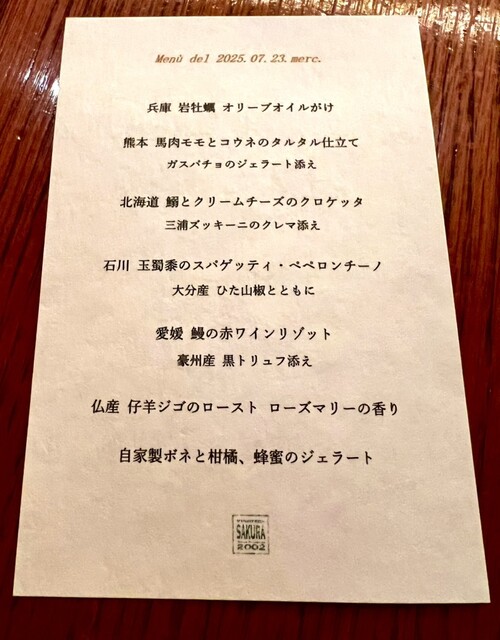 Menù del 2025.07.23.merc.
兵庫 岩牡蠣 オリーブオイルがけ
熊本 馬肉モモとコウネのタルタル仕立て
ガスパチョのジェラート添え
北海道 鰯とクリームチーズのクロケッタ
三浦ズッキーニのクレマ添え
石川 玉蜀黍のスパゲッティ・ペペロンチーノ
大分産 ひた山椒とともに
愛媛 鰻の赤ワインリゾット
豪州産 黒トリュフ添え
仏産 仔羊ジゴのロースト ローズマリーの香り
自家製ボネと柑橘、蜂蜜のジェラート
SAKURA
2002